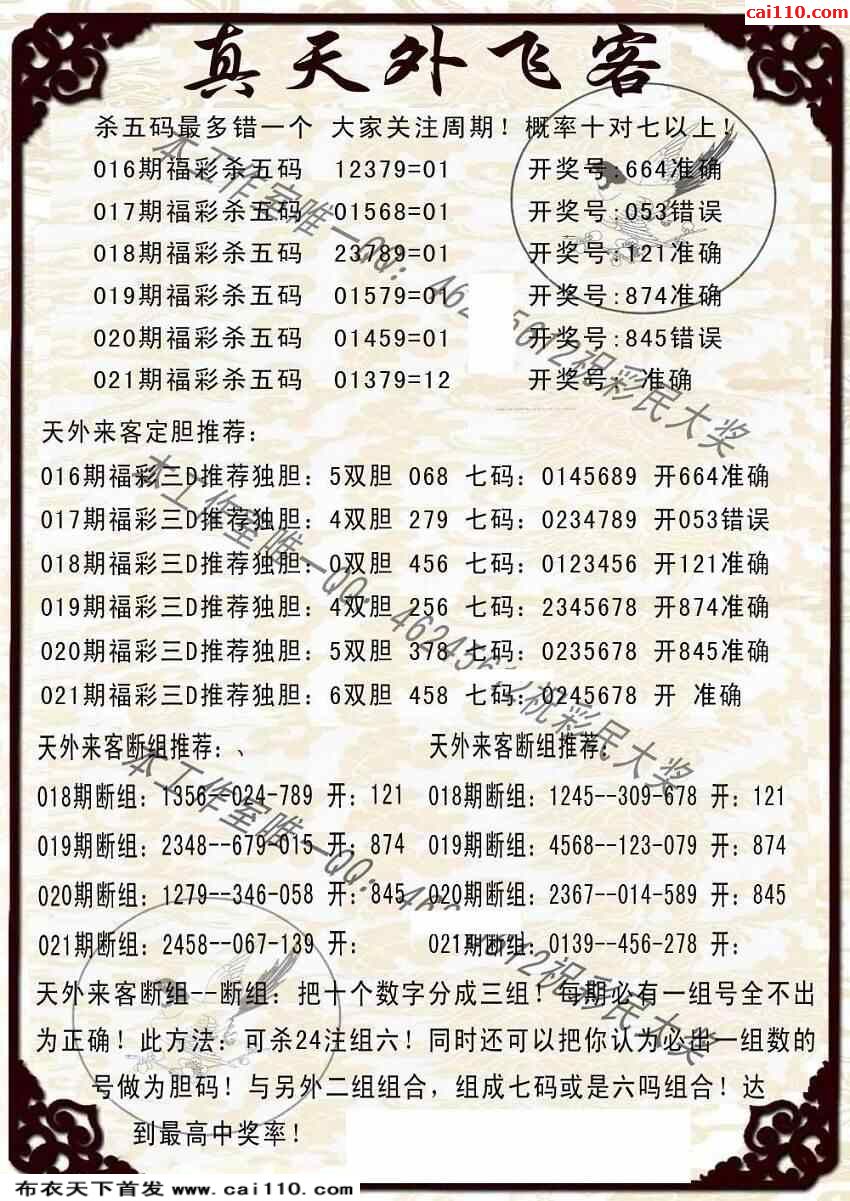 cai110.com
真天外飞客
杀五码最多错一个 大家关注周期！概率十对七以上！
016期福彩杀五码 12379=01 开奖号:664准确
017期福彩杀五码 01568=01 开奖号:053错误
018期福彩杀五码 23789=01 开奖号:121准确
019期福彩杀五码 01579=01 开奖号:874准确
020期福彩杀五码 01459=01 开奖号:845错误
021期福彩杀五码 01379=12 开奖号: 准确
天外来客定胆推荐：
016期福彩三D推荐独胆：5双胆 068 七码：0145689 开664准确
017期福彩三D推荐独胆：4双胆 279 七码：0234789 开053错误
018期福彩三D推荐独胆：0双胆 456 七码：0123456 开121准确
019期福彩三D推荐独胆：4双胆 256 七码：2345678 开874准确
020期福彩三D推荐独胆：5双胆 378 七码：0235678 开845准确
021期福彩三D推荐独胆：6双胆 458 七码：0245678 开 准确
天外来客断组推荐：、 天外来客断组推荐：
018期断组：1356--024-789 开：121 018期断组：1245--309-678 开：121
019期断组：2348--679-015 开：874 019期断组：4568--123-079 开：874
020期断组：1279--346-058 开：845 020期断组：2367--014-589 开：845
021期断组：2458--067-139 开： 021期断组：0139--456-278 开：
天外来客断组--断组：把十个数字分成三组！每期必有一组号全不出
为正确！此方法：可杀24注组六！同时还可以把你认为必出一组数的
号做为胆码！与另外二组组合，组成七码或是六吗组合！达
到最高中奖率！
本工作室唯一QQ：462 5612祝彩民大奖
本工作室唯一QQ：4624561 祝彩民大奖
本工作室唯一QQ：46 5612祝彩民大奖
布衣天下首发 www.cai110.com